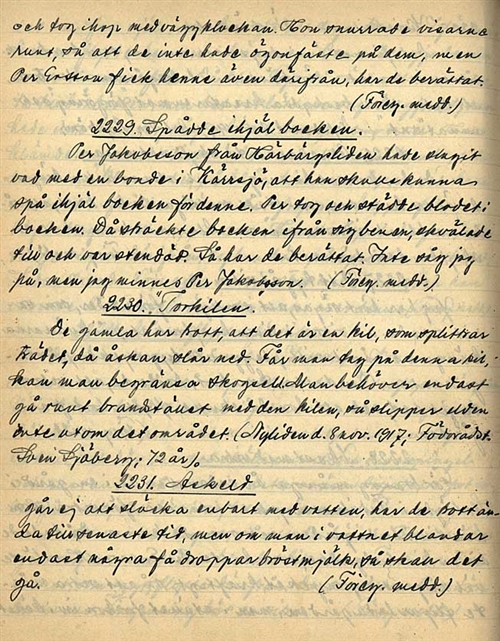 och tog ihop med väggklockan. Hon snurrade visarna
runt, så att de inte hade ögonfäste på dem, men
Per Ersson fick henne även därifrån, har de berättat.
(Föreg. medd.)
2229. Spådde ihjäl bocken.
Per Jakobsson från Hårbärgsliden hade slagit
vad med en bonde i Kärrsjö, att han skulle kunna
spå ihjäl bocken för denne. Per tog och städde blodet i
bocken. Då sträckte bocken ifrån sig benen, skvälade
till och var stendöd. Så har de berättat. Inte såg jag
på, men jag minnes Per Jakobsson. (Föreg. medd.)
2230. "Torkilen."
De gamla har trott, att det är en kil, som splittrar
trädet, då åskan slår ned. Får man tag på denna kil,
kan man begränsa skogseld. Man behöver endast
gå runt brandstället med den kilen, så slipper elden
inte utom det området. (Nyliden d. 8 nov. 1917. Födorådst.
Sven Sjöberg, 72 år).
2231. Åskeld
går ej att släcka enbart med vatten, har de trott än-
da till senaste tid, men om man i vattnet blandar
endast några få droppar bröstmjölk, så skall det
gå. (Föreg. medd.)